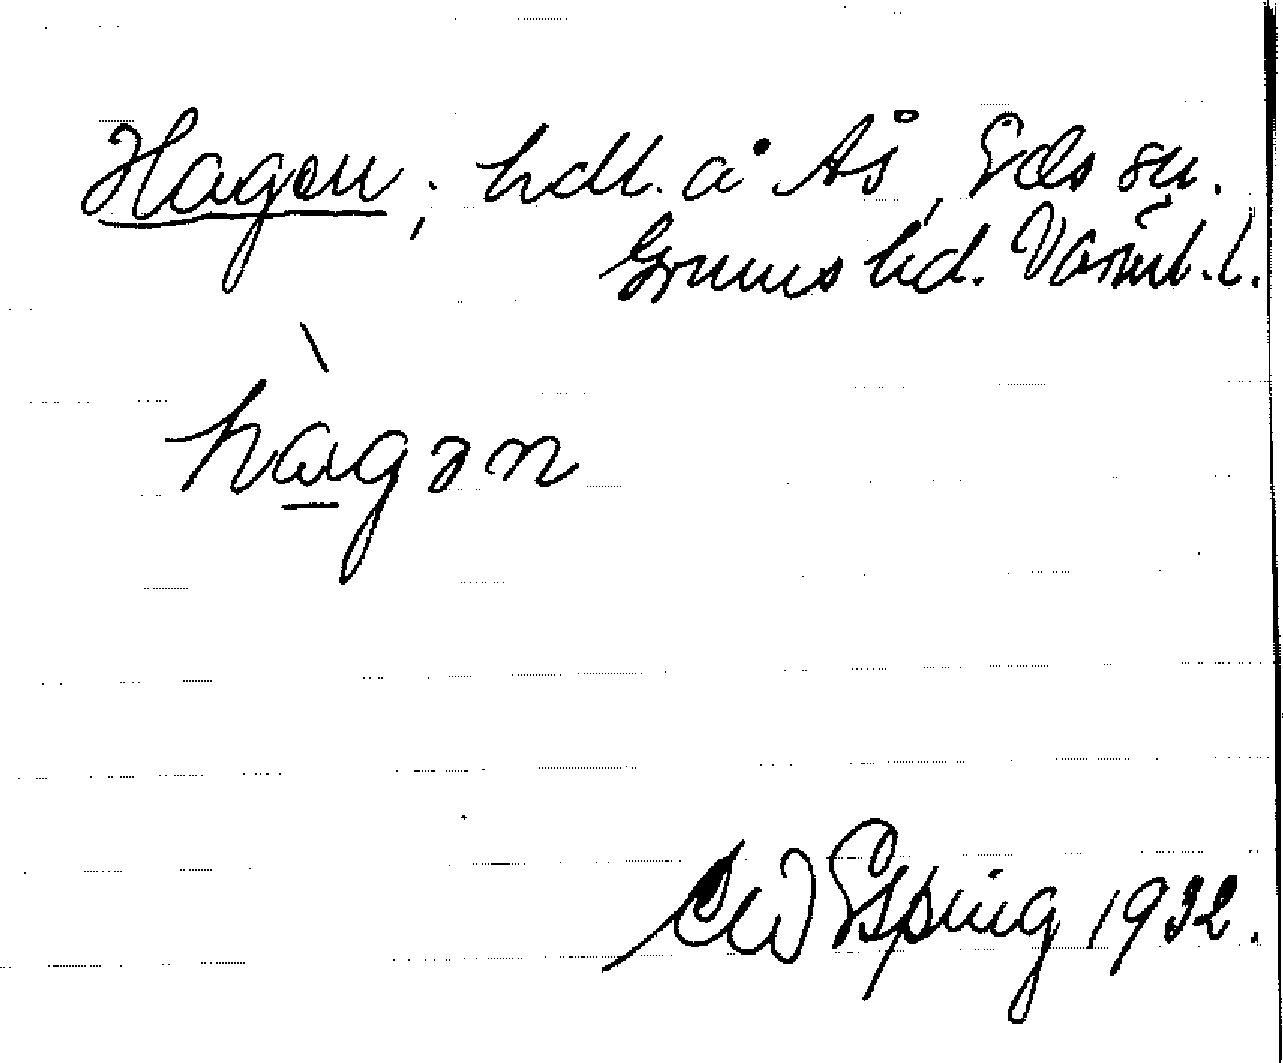 Hagen; hdl. å Ås, Eds sn.
Grums hd. Värml. l.
hàgən
CW Esping 1932.